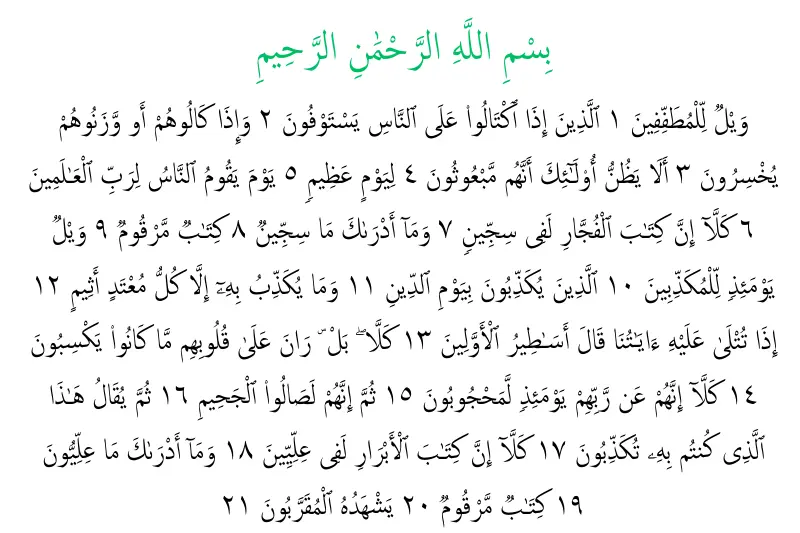 بِسْمِ اللَّهِ الرَّحْمَٰنِ الرَّحِيمِ
وَيْلٌ لِّلْمُطَفِّفِينَ ١ ٱلَّذِينَ إِذَا ٱكْتَالُوا۟ عَلَى ٱلنَّاسِ يَسْتَوْفُونَ ٢ وَإِذَا كَالُوهُمْ أَو وَّزَنُوهُمْ
يُخْسِرُونَ ٣ أَلَا يَظُنُّ أُو۟لَٰٓئِكَ أَنَّهُم مَّبْعُوثُونَ ٤ لِيَوْمٍ عَظِيمٍۢ ٥ يَوْمَ يَقُومُ ٱلنَّاسُ لِرَبِّ ٱلْعَٰلَمِينَ
٦ كَلَّآ إِنَّ كِتَٰبَ ٱلْفُجَّارِ لَفِى سِجِّينٍۢ ٧ وَمَآ أَدْرَىٰكَ مَا سِجِّينٌۭ ٨ كِتَٰبٌۭ مَّرْقُومٌۭ ٩ وَيْلٌۭ
يَوْمَئِذٍۢ لِّلْمُكَذِّبِينَ ١٠ ٱلَّذِينَ يُكَذِّبُونَ بِيَوْمِ ٱلدِّينِ ١١ وَمَا يُكَذِّبُ بِهِۦٓ إِلَّا كُلُّ مُعْتَدٍ أَثِيمٍ ١٢
إِذَا تُتْلَىٰ عَلَيْهِ ءَايَٰتُنَا قَالَ أَسَٰطِيرُ ٱلْأَوَّلِينَ ١٣ كَلَّا ۖ بَلْ ۜ رَانَ عَلَىٰ قُلُوبِهِم مَّا كَانُوا۟ يَكْسِبُونَ
١٤ كَلَّآ إِنَّهُمْ عَن رَّبِّهِمْ يَوْمَئِذٍۢ لَّمَحْجُوبُونَ ١٥ ثُمَّ إِنَّهُمْ لَصَالُوا۟ ٱلْجَحِيمِ ١٦ ثُمَّ يُقَالُ هَٰذَا
ٱلَّذِى كُنتُم بِهِۦ تُكَذِّبُونَ ١٧ كَلَّآ إِنَّ كِتَٰبَ ٱلْأَبْرَارِ لَفِى عِلِّيِّينَ ١٨ وَمَآ أَدْرَىٰكَ مَا عِلِّيُّونَ
١٩ كِتَٰبٌۭ مَّرْقُومٌۭ ٢٠ يَشْهَدُهُ ٱلْمُقَرَّبُونَ ٢١